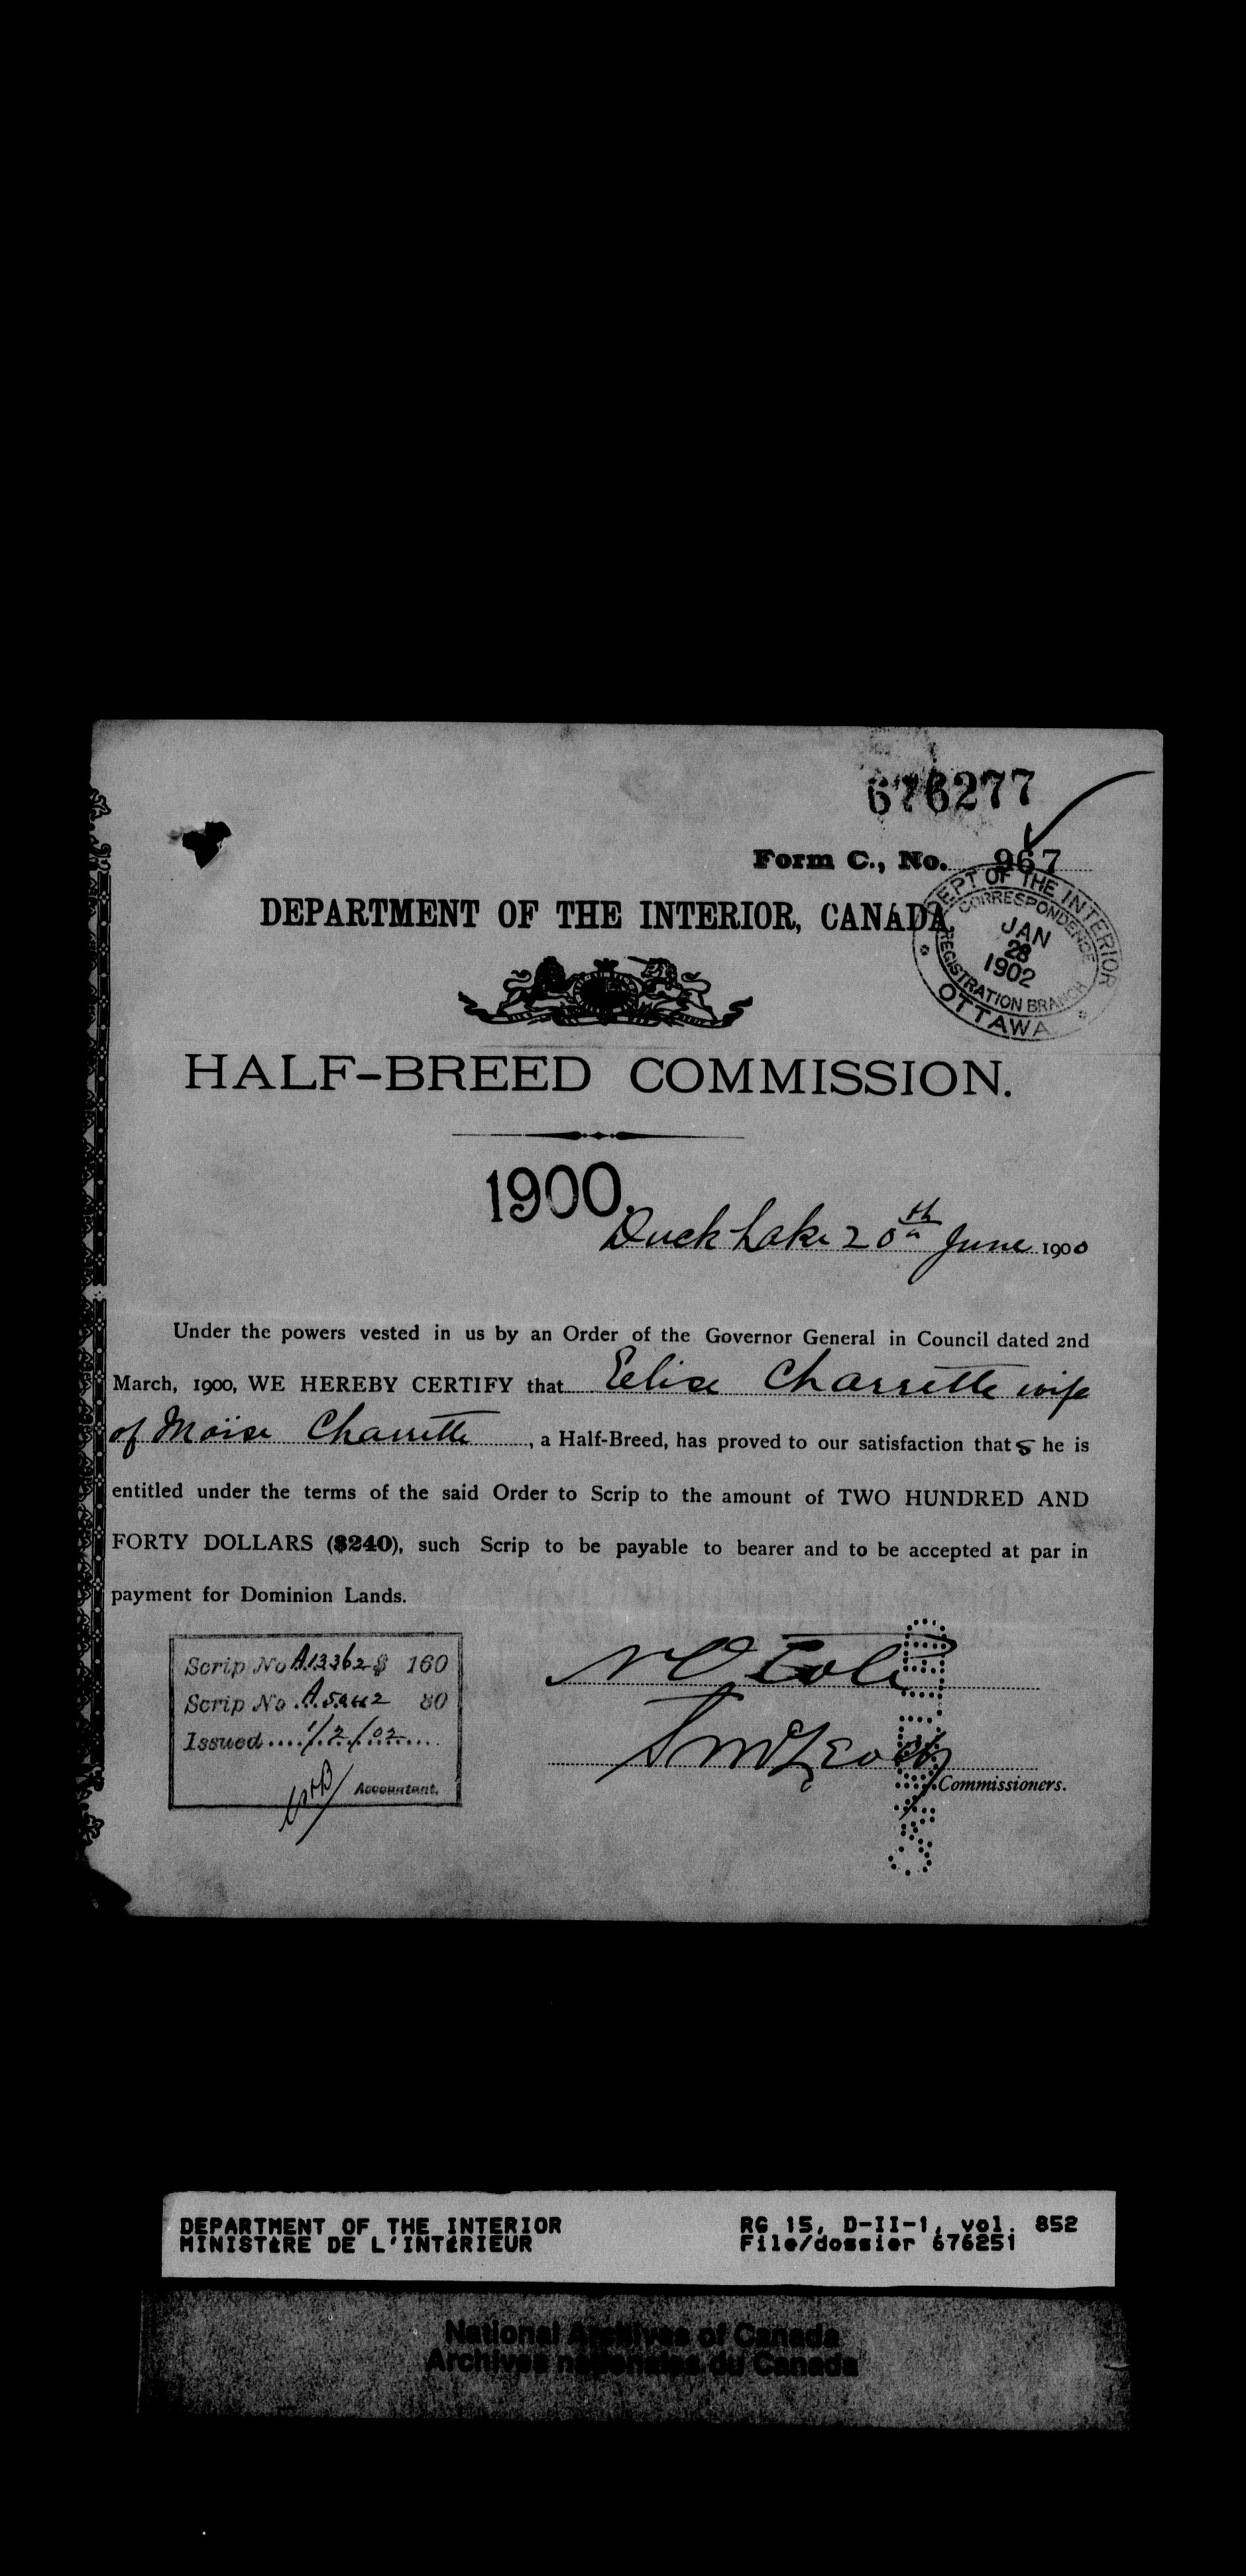 676277
Form C., No. 967
DEPARTMENT OF THE INTERIOR, CANADA
DEPT OF THE INTERIOR
CORRESPONDENCE
JAN
28
1902
REGISTRATION BRANCH
OTTAWA
HALF-BREED COMMISSION.
1900.
Duck Lake 20th June 1900
Under the powers vested in us by an Order of the Governor General in Council dated 2nd
March, 1900, WE HEREBY CERTIFY that Elise Charrette wife
of Moïse Charrette, a Half-Breed, has proved to our satisfaction that s he is
entitled under the terms of the said Order to Scrip to the amount of TWO HUNDRED AND
FORTY DOLLARS ($240), such Scrip to be payable to bearer and to be accepted at par in
payment for Dominion Lands.
Scrip No A.13362 $ 160
Scrip No 80
Issued 1/2/02
Accountant.
N O Coté
Commissioners.
DEPARTMENT OF THE INTERIOR
MINISTÈRE DE L'INTÉRIEUR
RG 15, D-II-1, vol. 852
File/dossier 676251
National Archives of Canada
Archives nationales du Canada